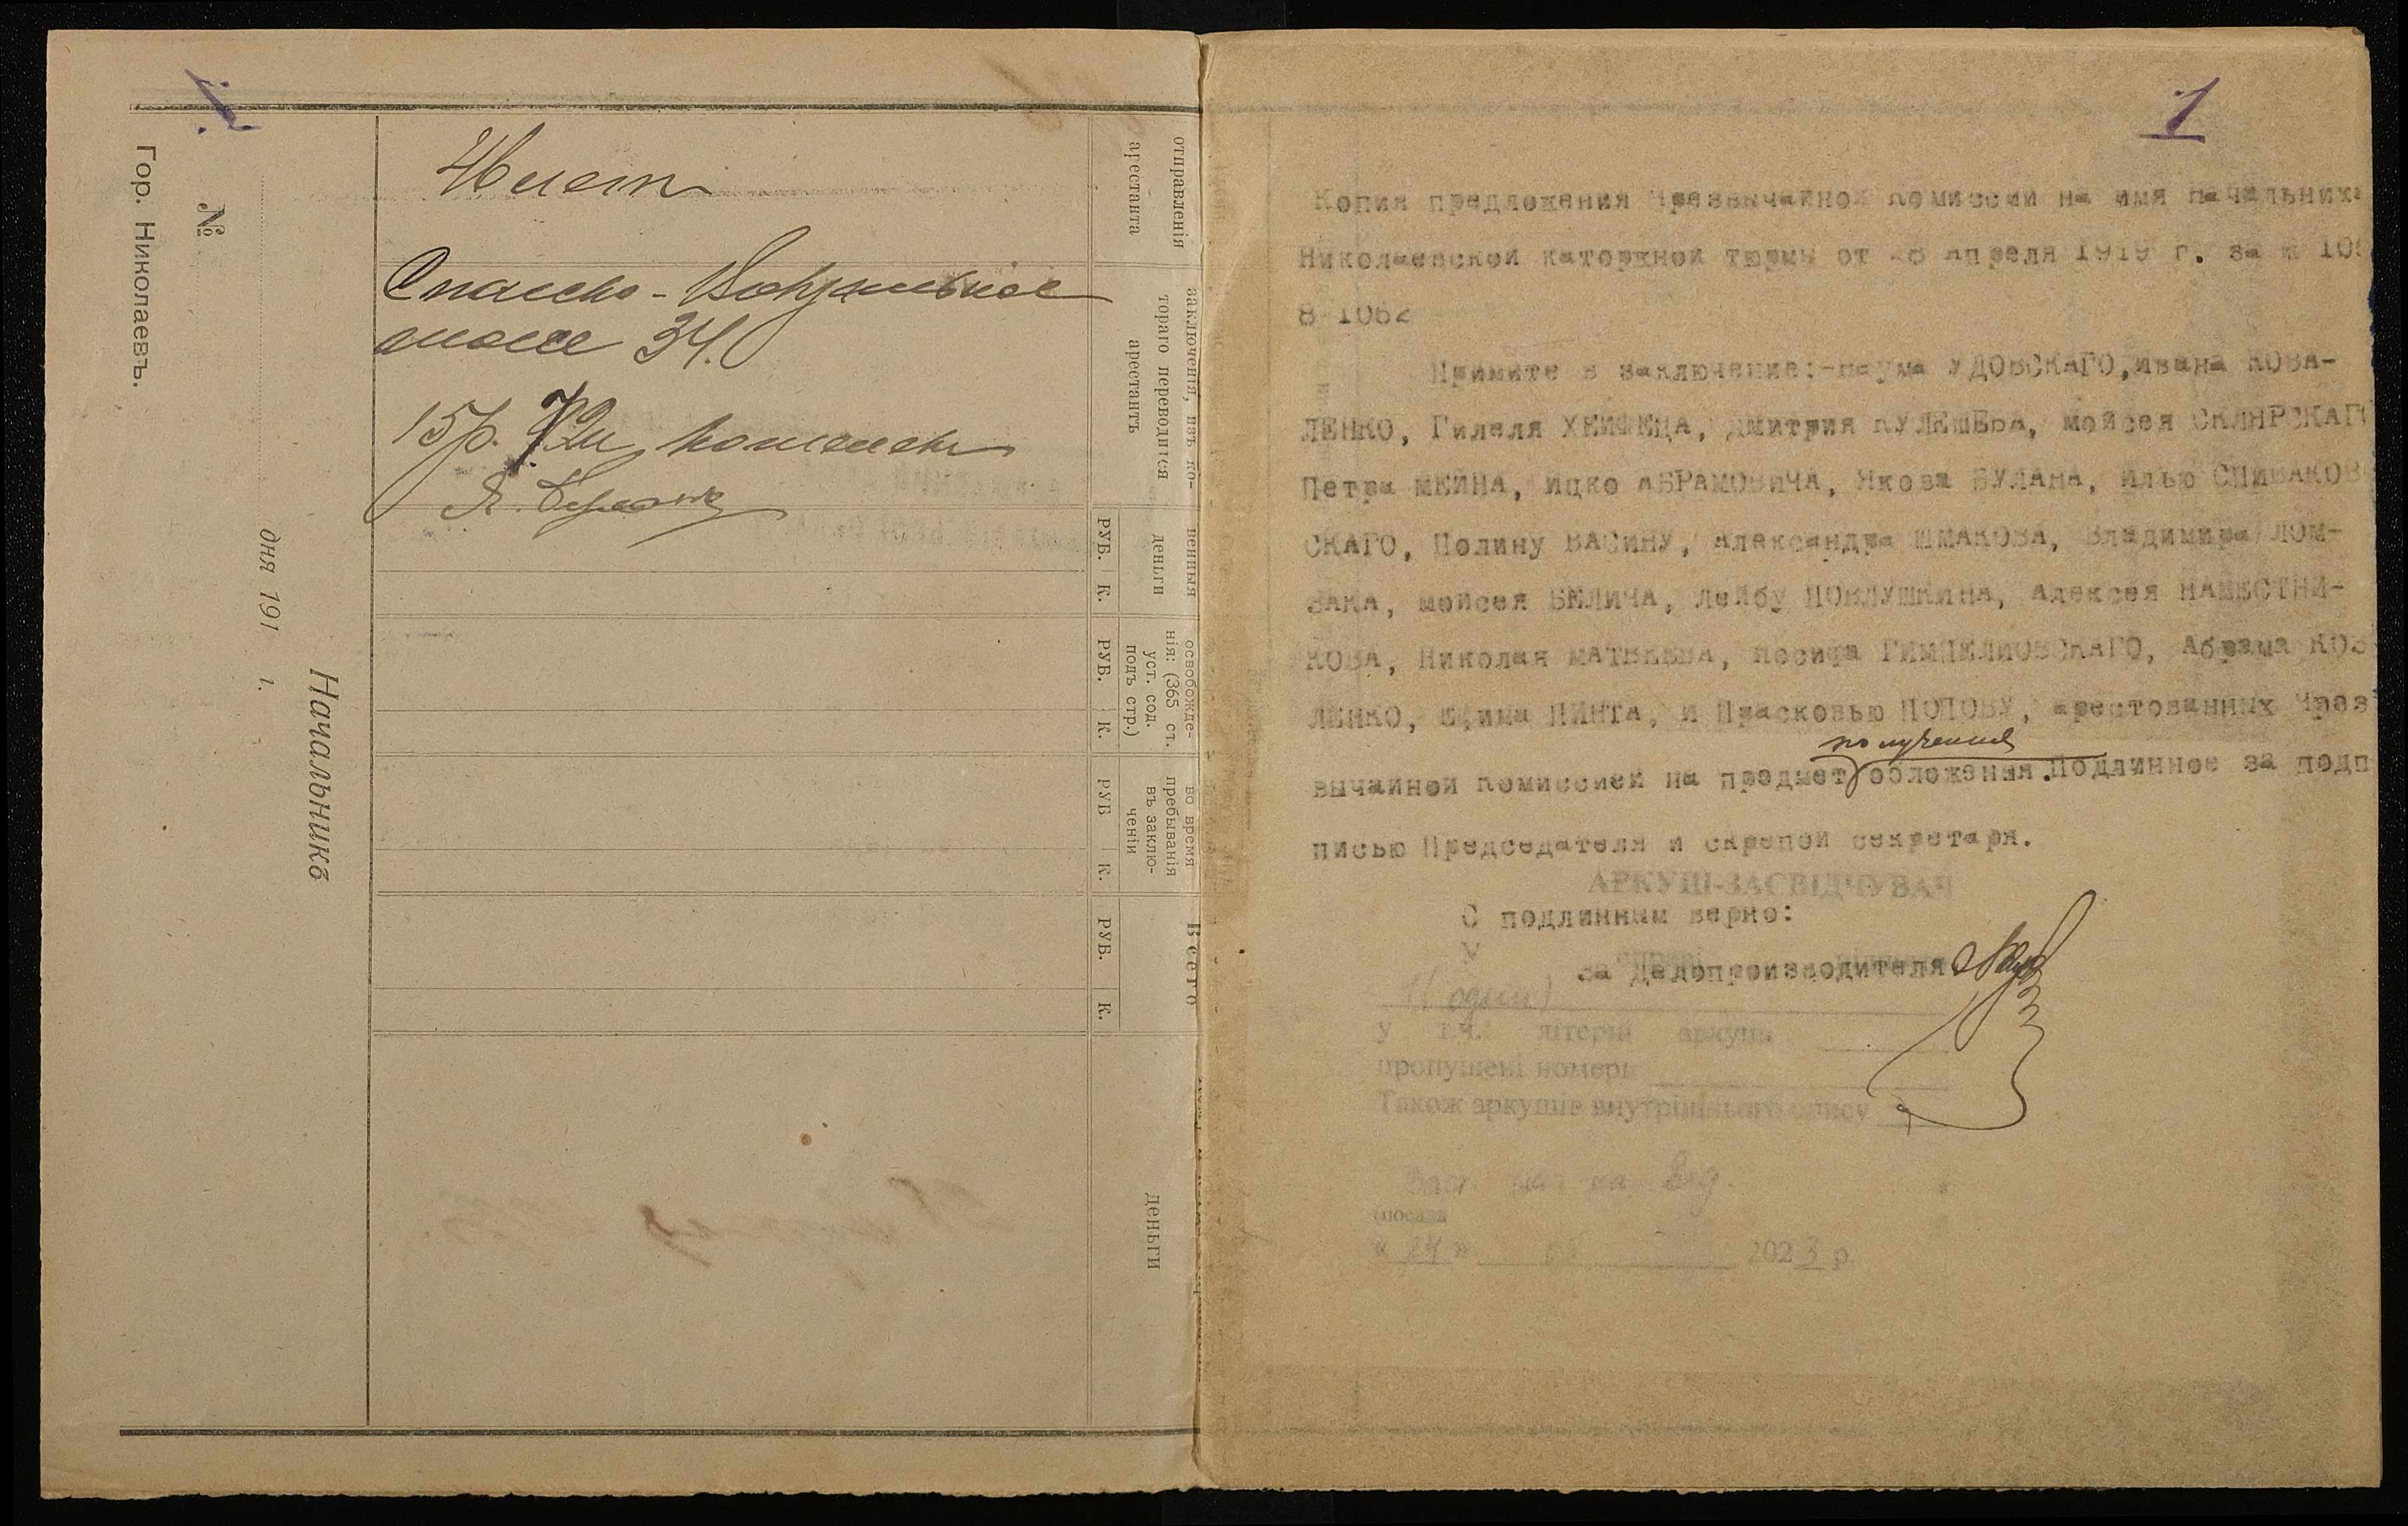 Гор. Николаевъ.
№
дня 191 г.
Начальникъ
отправленія
арестанта
заключенія, изъ ко-
тораго переводится
арестантъ
венныя
деньги
РУБ. К.
освобожде-
нія: (365 ст.
уст. сод.
подъ стр.)
РУБ. К.
во время
пребыванія
въ заклю-
ченіи
РУБ К.
Всего
РУБ. К.
деньги
34.
15р. 72к
1
Копия предложения Чрезвычайной Комиссии на имя Начальника
Николаевской каторжной тюрмы от 28 Апреля 1919 г. за №
8 1062
Примите в заключение:-Наума УДОВСКАГО, Ивана КОВА-
ЛЕНКО, Гилеля ХЕЙФЕЦА, Дмитрия КУЛЕШЕВА, Мойсея СКЛЯРСКАГО
Петра МЕЙНА, Ицко АБРАМОВИЧА, Якова БУЛАНА, Илью СПИВАКОВ
СКАГО, Полину ВАСИНУ, Александра ШМАКОВА, Владимира ЛОМ-
ЗАКА, Мойсея БЕЛИЧА, Лейбу ПОВЛУШКИНА, Алексея НАМЕСТНИ-
КОВА, Николая МАТВЕЕВА, Иосифа ГИМПЕЛИОВСКАГО, Абрама КОВ
ЛЕНКО, Ефима ПИНТА, и Прасковью ПОПОВУ, арестованных Чрез
получения
вычайной Комиссией на предмет обложения. Подлинное за подп
писью Председателя и скрепой секретаря.
АРКУШ-ЗАСВІДЧУВАЧ
С подлинным верно:
У
за Делопроизводителя
1 (один)
у т.ч. літерні аркуші
пропущені номери
Також аркушів внутрішнього опису
(посада
« 24 » 2023 р